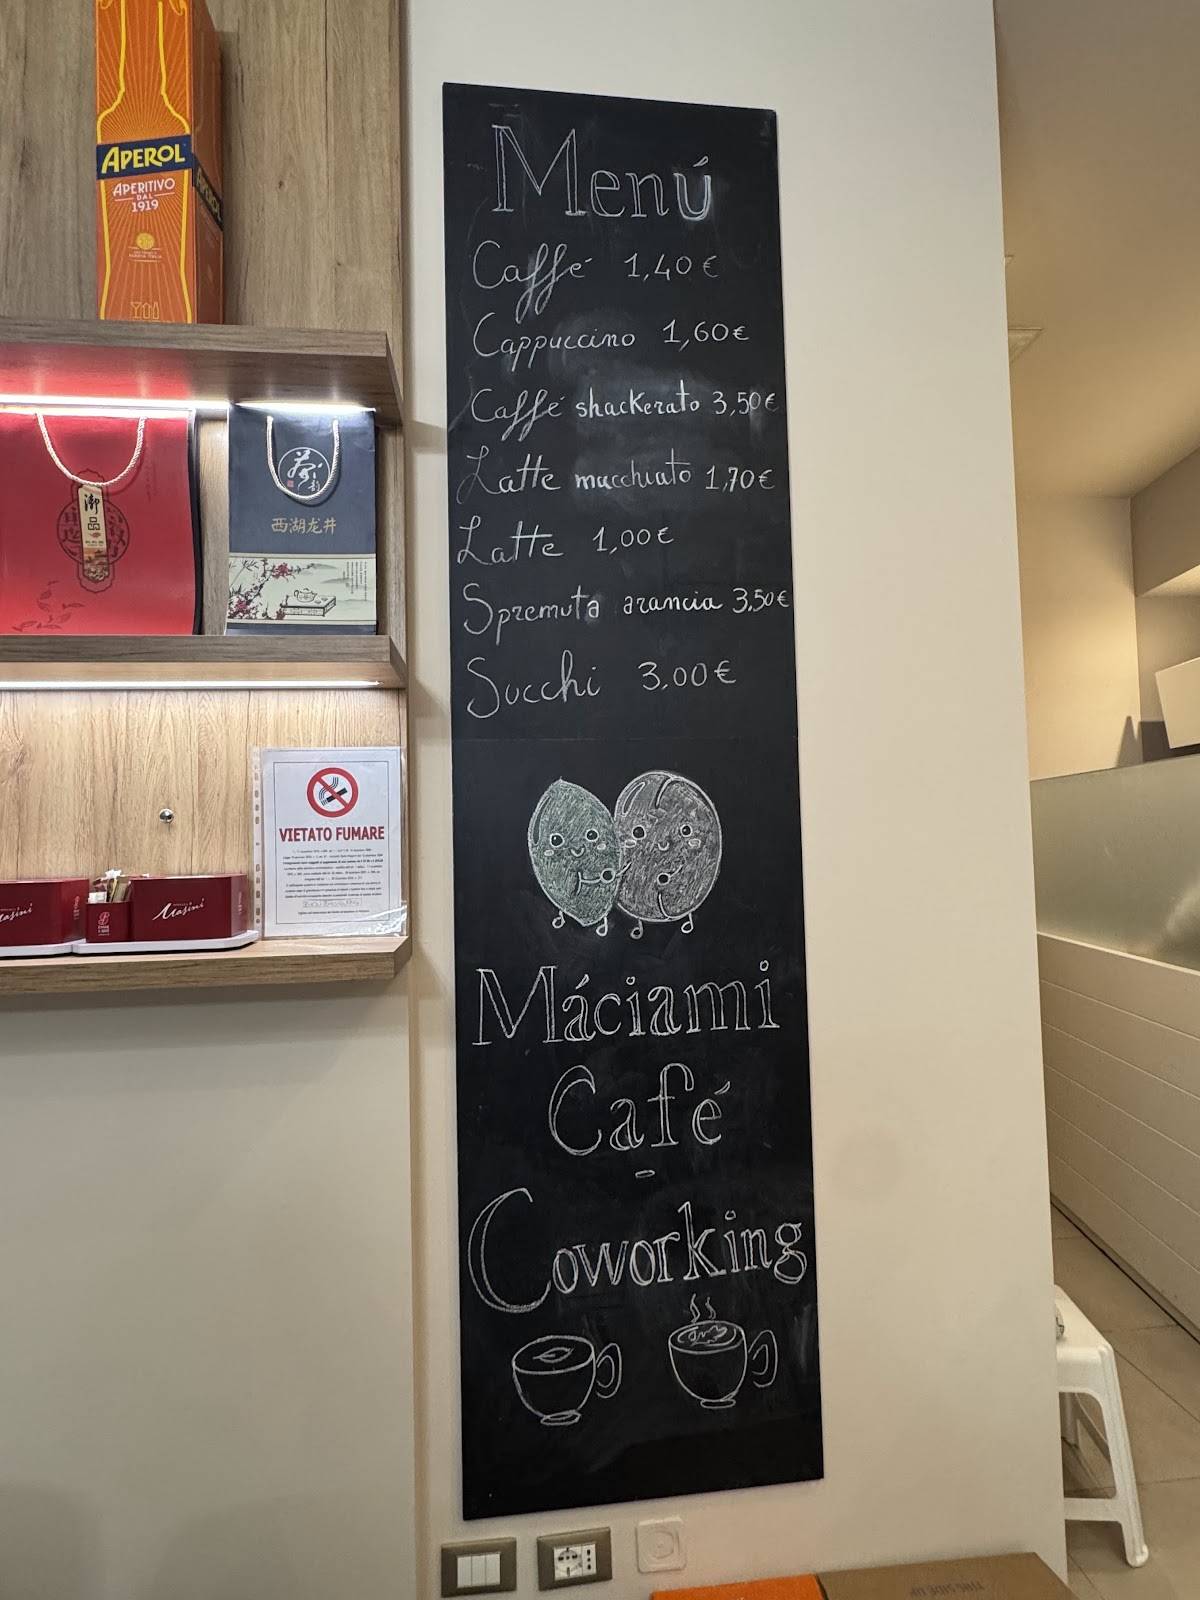 Menú
Caffé 1,40 €
Cappuccino 1,60€
Caffé shackerato 3,50€
Latte macchiato 1,70€
Latte 1,00€
Spremuta arancia 3,50€
Succhi 3,00€
Máciami
Café
-
Coworking
APEROL
APERITIVO
DAL
1919
APEROL
御品
茶韵
西湖龙井
VIETATO FUMARE
Masini
Masini
THIS SIDE UP